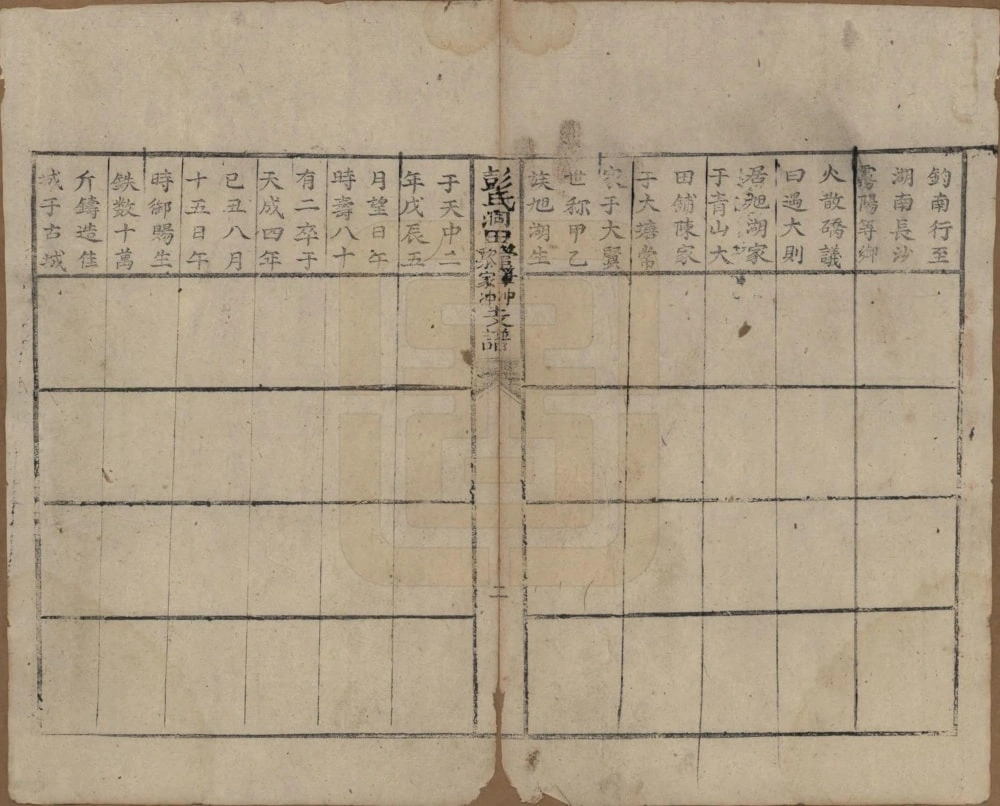 鈞南行至
湖南長沙
霧陽等鄉
火散礄議
曰過大則
居旭湖家
于青山大
田鋪陳家
于大塘常
家于大賢
世称甲乙
族旭湖生
彭氏澗田
欧家冲
支譜
二
于天中二
年戊辰五
月望日午
時壽八十
有二卒于
天成四年
己丑八月
十五日午
時御賜生
鉄数十萬
斤鑄造佳
城于古城